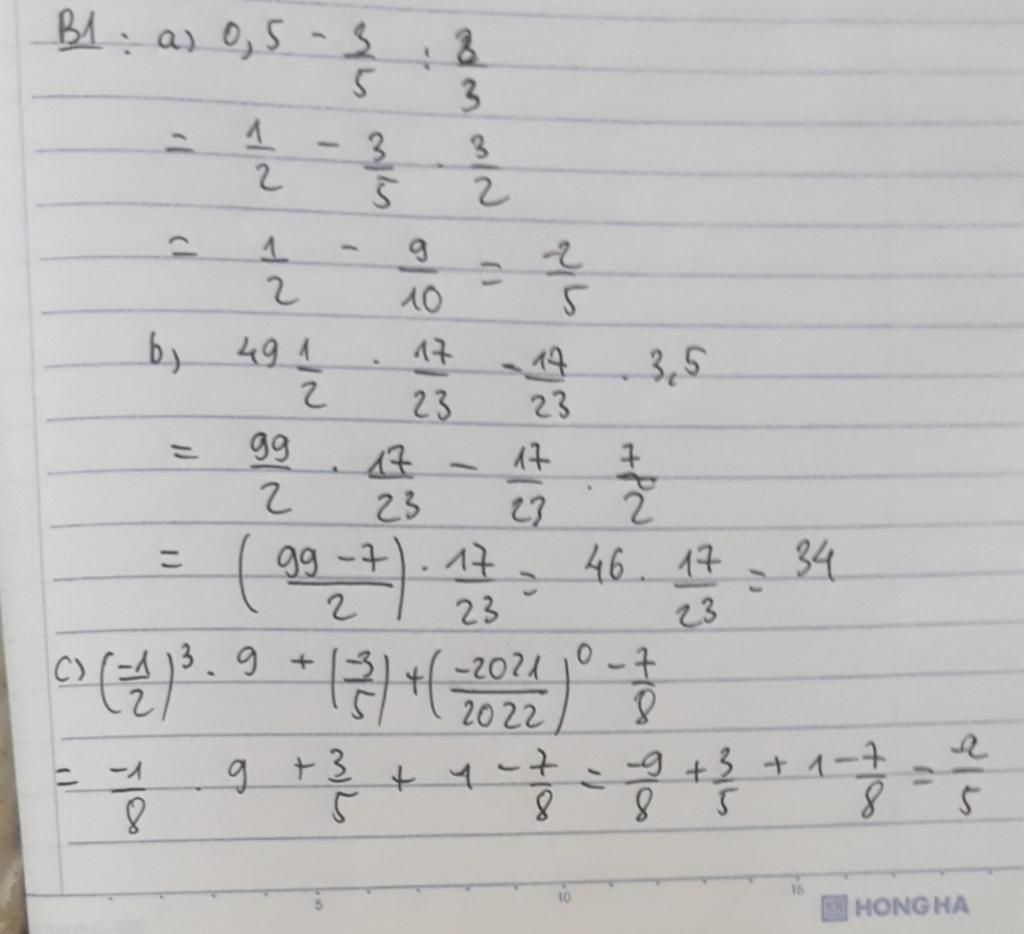 B1 : a) 0,5 - 3/5 : 2/3
= 1/2 - 3/5 . 3/2
= 1/2 - 9/10 = -2/5
b) 49 1/2 . 17/23 - 17/23 . 3,5
= 99/2 . 17/23 - 17/23 . 7/2
= ( 99 - 7 / 2 ) . 17/23 = 46 . 17/23 = 34
c) (-1/2)³ . 9 + |-3/5| + (-2021/2022)⁰ - 7/8
= -1/8 . 9 + 3/5 + 1 - 7/8 = -9/8 + 3/5 + 1 - 7/8 = -2/5
5 10 15
HH HONG HA